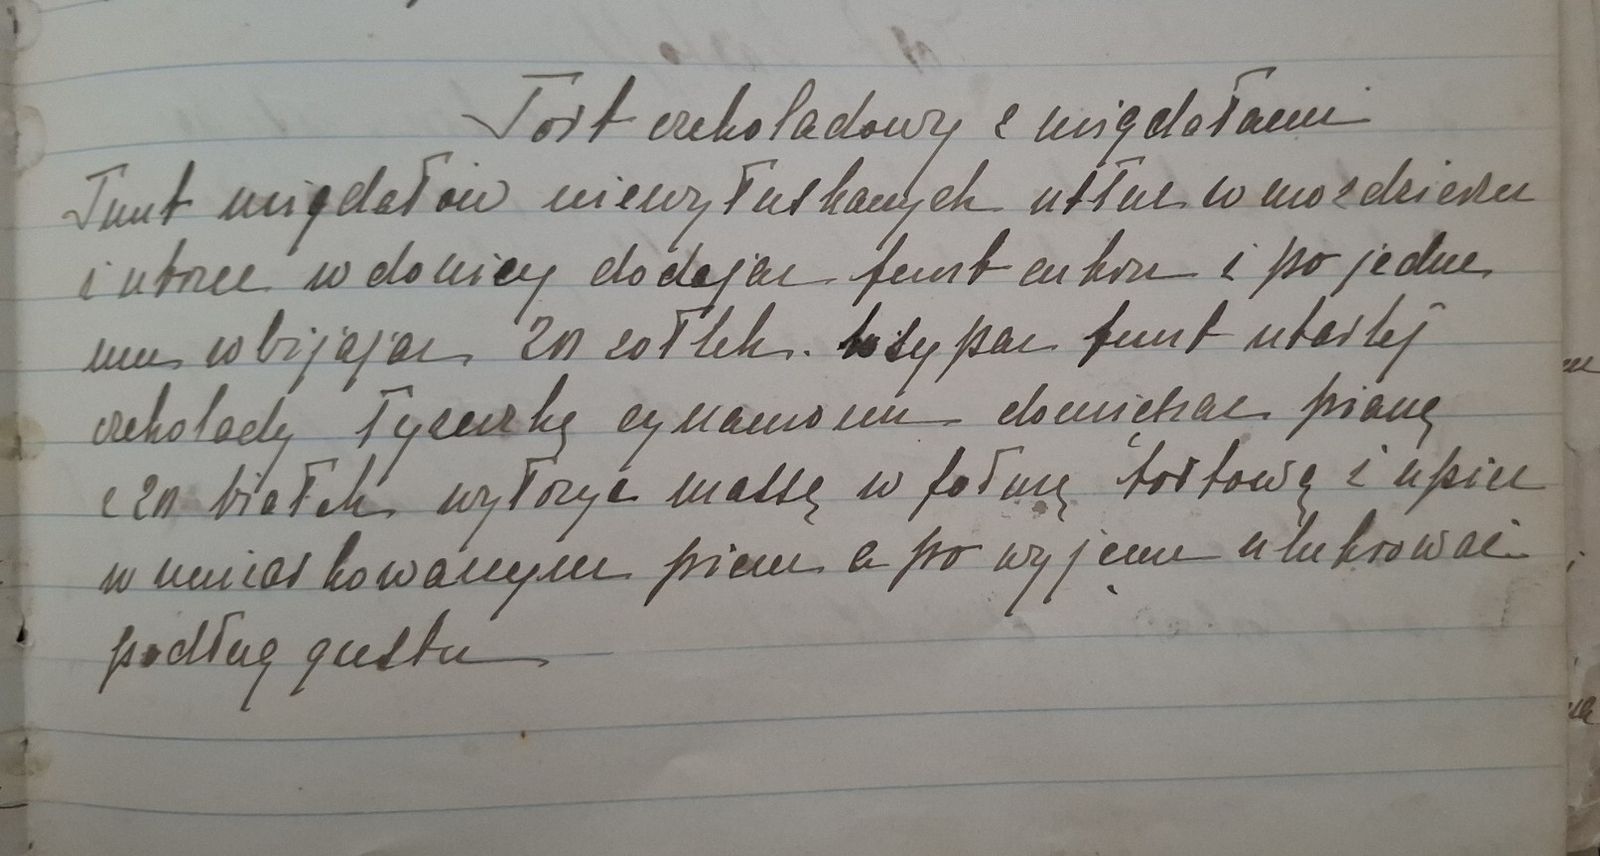 Tort czekoladowy z migdałami
Funt migdałów niewyłuskanych utłuc w mozdzierzu
i utrzec w donicy dodając funt cukru i po jedne
mu wbijając 20 zołtek. wsypac funt utartej
czekolady łyzeczkę cynamonu domieszac pianę
z 20 białek wyłozyc massę w formę tortową i upiec
w umiarkowanym piecu a po wyjęciu ulukrować
podług gustu